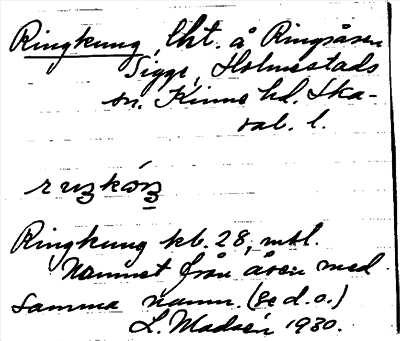 Ringkung, lht. å Ringåsen
Sigge, Holmestads
sn. Kinne hd. Ska-
rab. l.
Ringkung kb. 28, mtl.
Namnet från åsen med
samma namn. (se d.o.)
L. Madsén 1930.